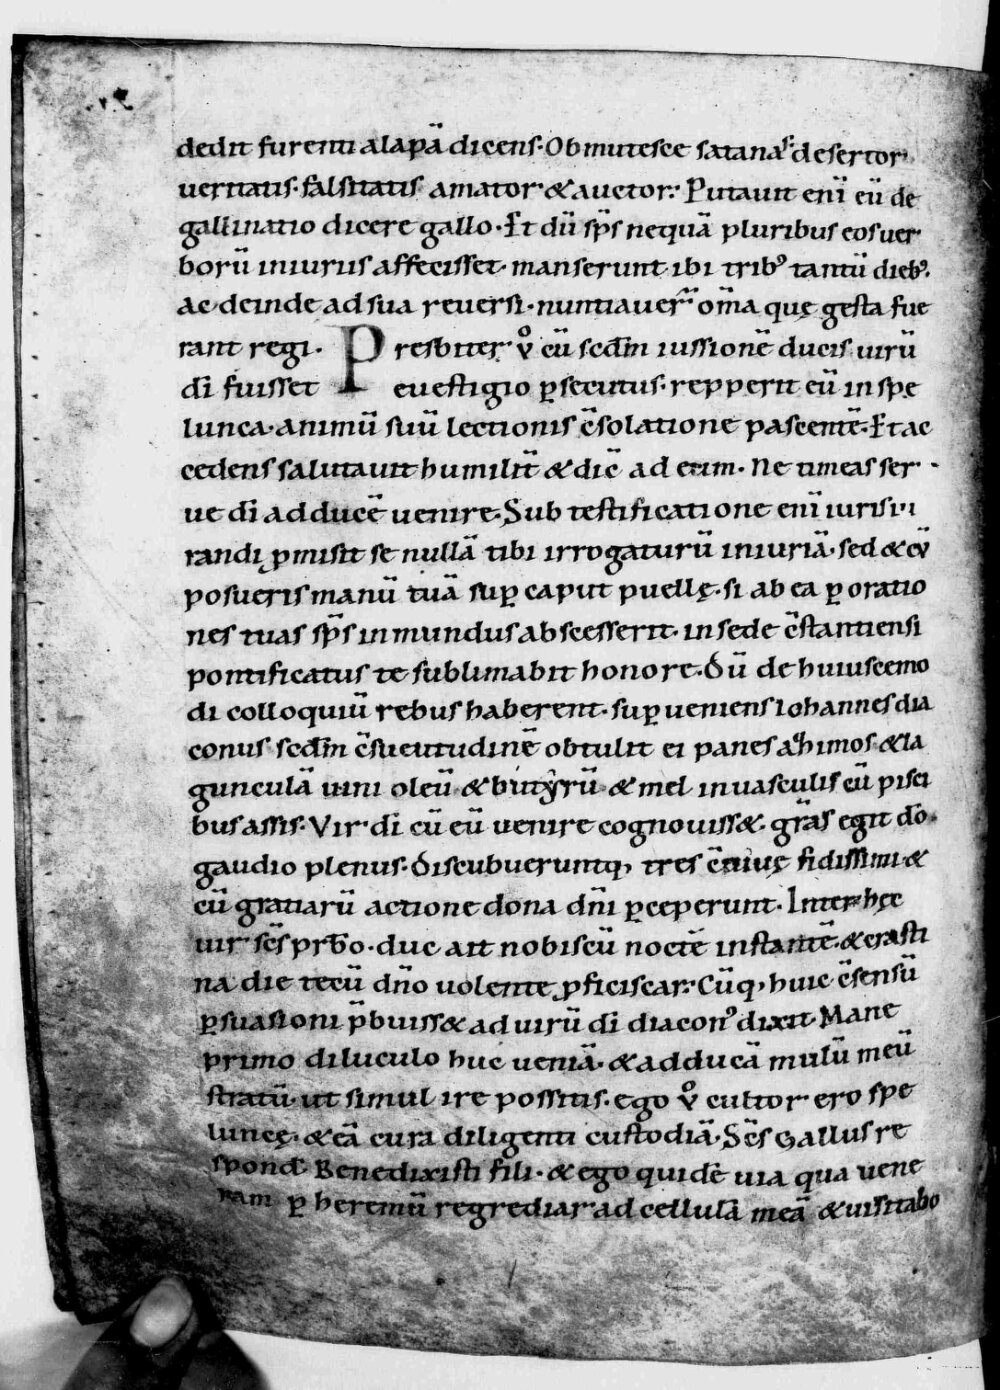 dedit furenti alapā dicens· Obmutesce satanas· desertor
ueritatis· falsitatis amator· & auctor· Putauit eni᷈ eū de
gallinatio dicere gallo· Et dū sp̄s nequā pluribus eos uer
borū iniuriis affecisset· manserunt ibi trib᷒ tantū dieb᷒·
ac deinde ad sua reuersi· nuntiauer̄ om̄a quę gesta fue
rant regi· Presbiter v̊ cū scd̄m iussionē ducis uirū
dī fuisset e uestigio ꝑsecutus· repperit eū in spe
lunca· animū suū lectionis c̄solatione pascentē· Et ac
cedens salutauit humilit̄ & dic̄ ad eum· Ne timeas ser
ue dī ad ducē uenire· Sub testificatione eni᷈ iurisiu
randi ꝓmisit se nullā tibi irrogaturū iniuriā· sed & cū
posueris manū tuā suꝑ caput puellę· si ab ea ꝑ oratio
nes tuas sp̄s inmundus abscesserit· in sede c̄stantiensi
pontificatus te sublimabit honore· Dū de huiuscemo
di colloquiū rebus haberent· suꝑueniens iohannes dia
conus scd̄m c̄suetudinē obtulit ei panes azhimos & la
gunculā uini oleū & butẏrū & mel in uasculis cū pisci
bus assis· Vir dī cū eū uenire cognouiss&· gr̄as egit dō
gaudio plenus· Discubueruntq, tres c̄uiuę fidissimi &
cū gratiarū actione dona dn̄i ꝑceperunt· Inter hęc
uir sc̄s pr̄bo· duc ait nobiscū noctē instantē· & crasti
na die tecū dn̄o uolente ꝓficiscar· Cūq, huic c̄sensū
ꝑsuasioni p̄buiss& ad uirū dī diacon᷒ dixit· Mane
primo diluculo huc ueniā· & adducā mulū meū
stratū· ut simul ire possitis· ego v̊ cultor ero spe
luncę· & eā cura diligenti custodiā· Sc̄s Gallus re
spond̄· Benedixisti fili· & ego quidē uia qua uene
ram ꝑ heremū regrediar ad cellulā meā & uisitabo